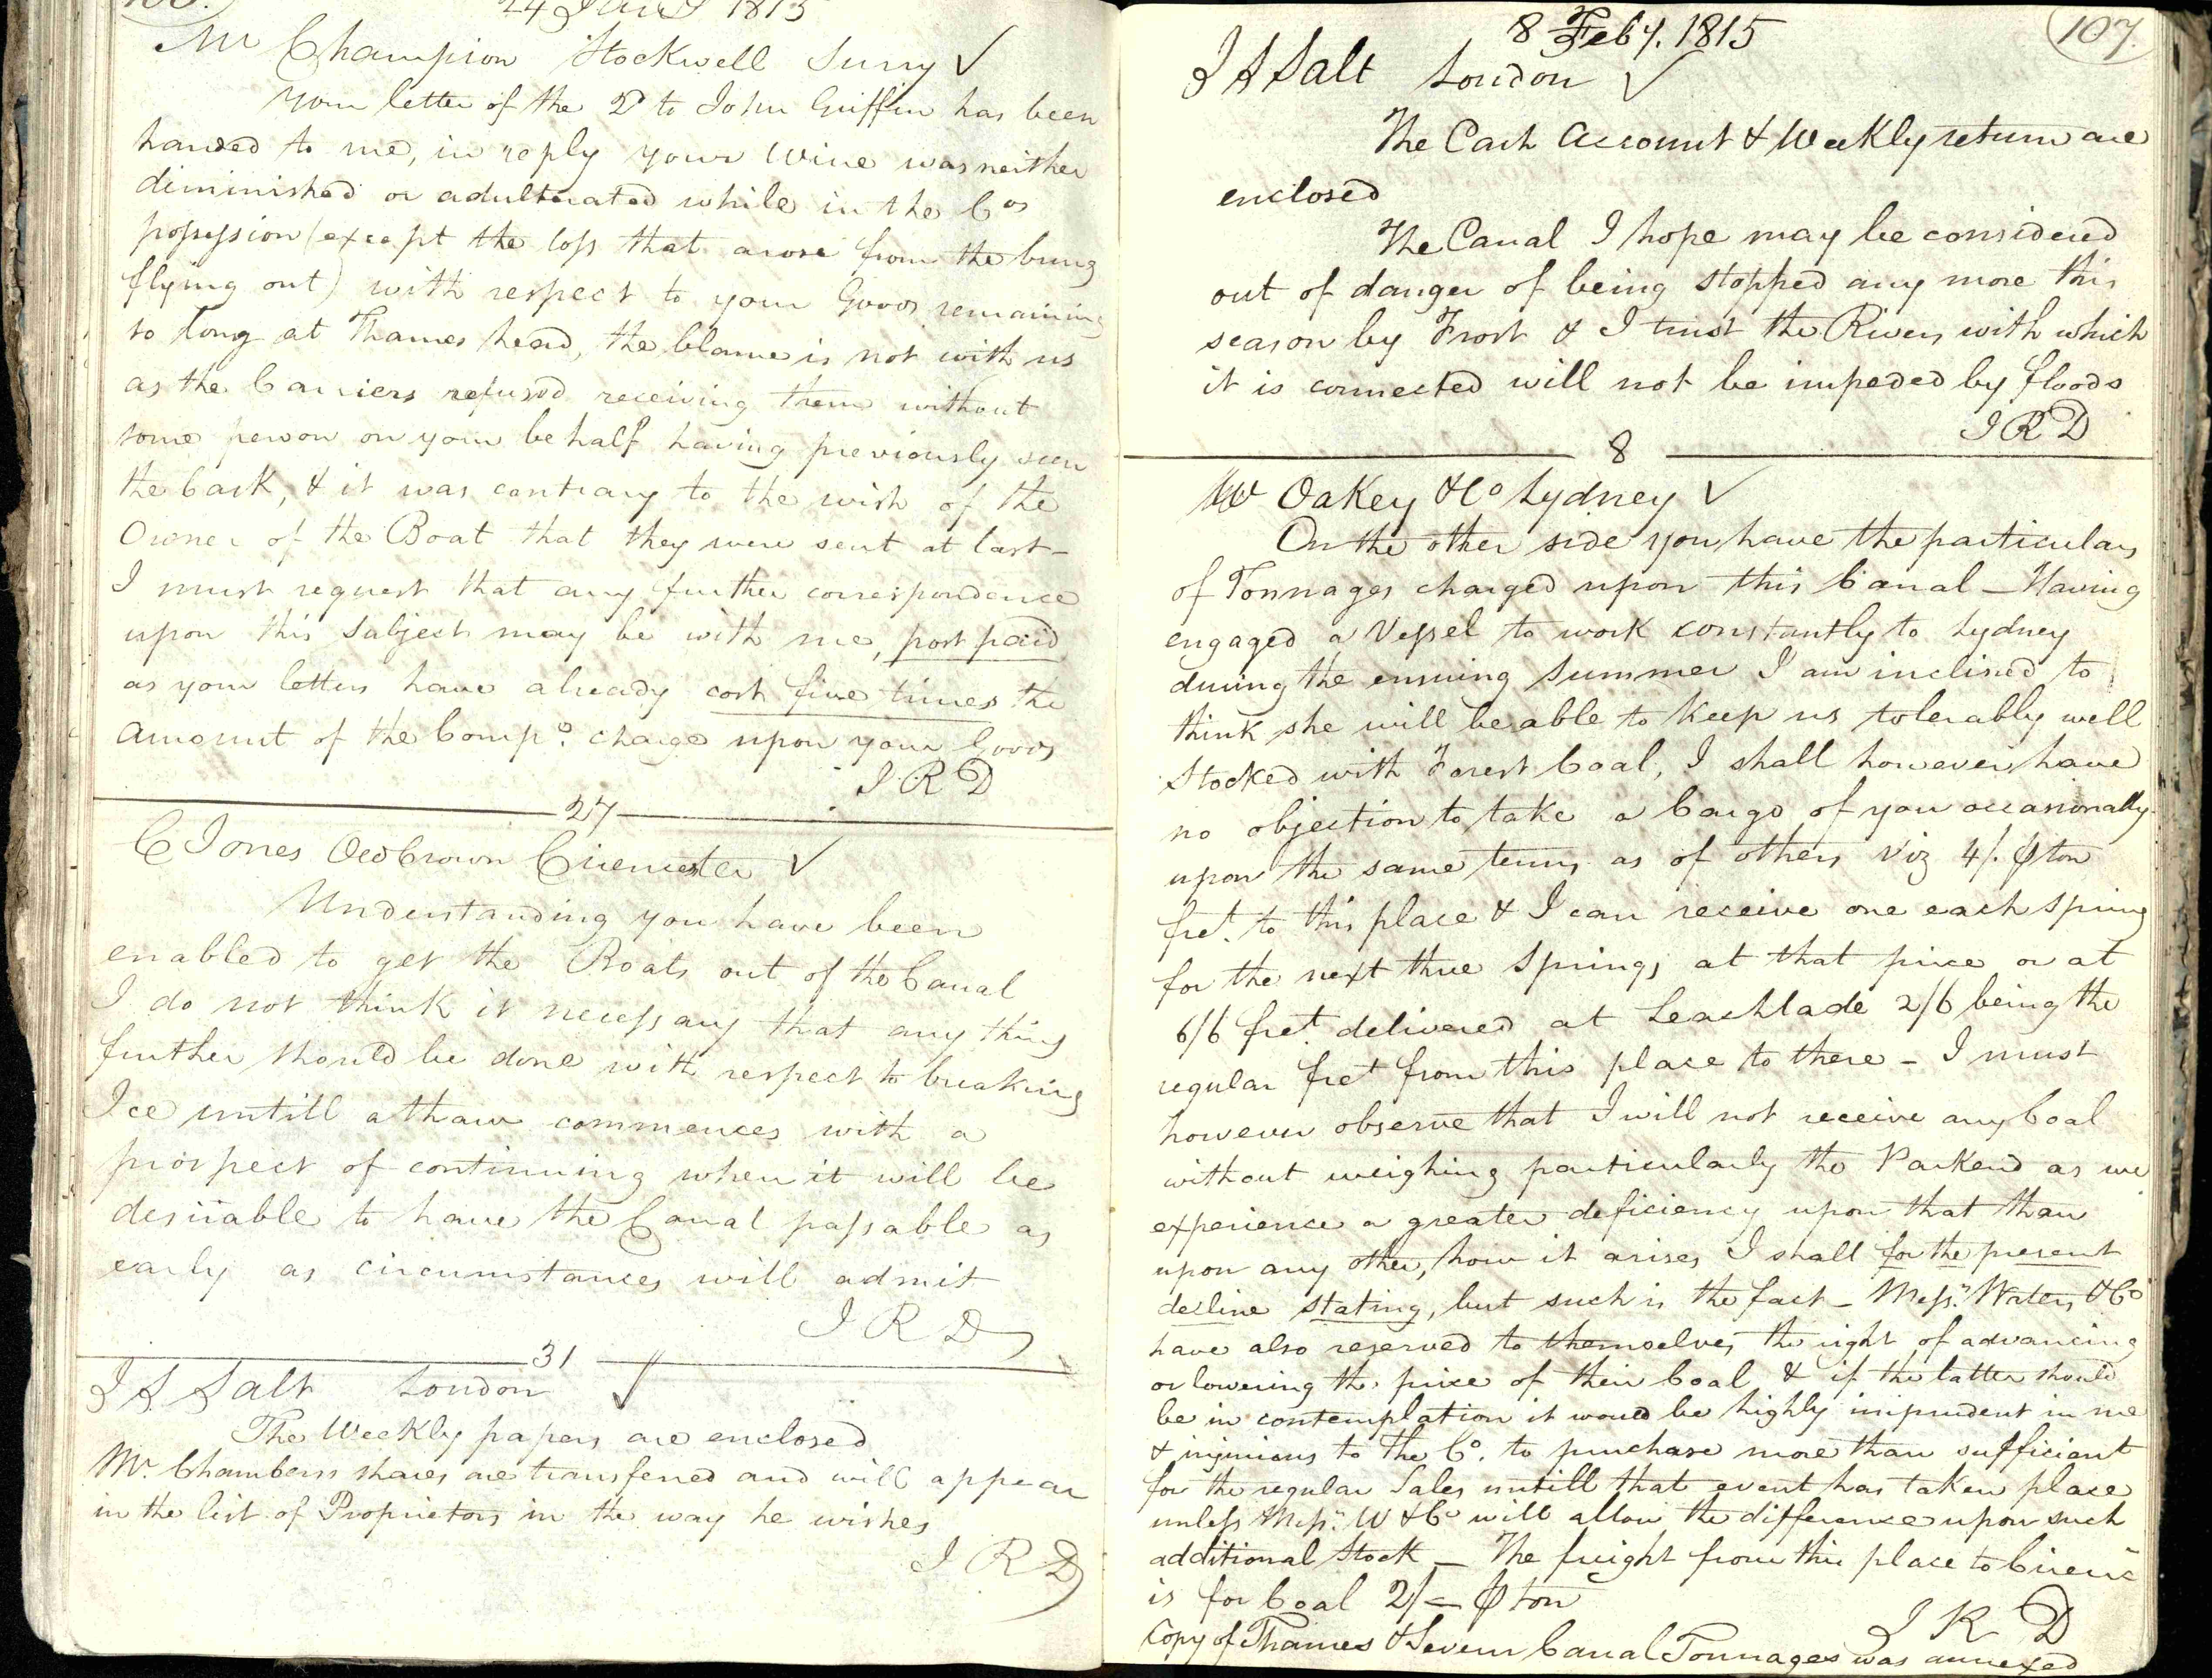 106.
24 Jany 1815
Mr Champion Stockwell Surry ✓
Your letter of the 2d to John Griffin has been
handed to me, in reply your Wine was neither
diminished or adulterated while in the Cos
possession (except the loss that arose from the bung
flying out) with respect to your Goods remaining
so long at Thames head, the blame is not with us
as the Carriers refused receiving them without
some person on your behalf having previously seen
the Cask, & it was contrary to the wish of the
Owner of the Boat that they were sent at last -
I must request that any further correspondence
upon this subject may be with me, post paid
as your letters have already cost five times the
amount of the Compo. charge upon your Goods
I R D
27
C Jones Old Crown Cirencester ✓
Understanding you have been
enabled to get the Boats out of the Canal
I do not think it necessary that any thing
further should be done with respect to breaking
Ice untill a thaw commences with a
prospect of continuing when it will be
desirable to have the Canal passable as
early as circumstances will admit
I R D
31
I S Salt London ✓
The Weekly papers are enclosed
Mr. Chambers shares are transferred and will appear
in the list of Proprietors in the way he wishes
I R D
107.
8 Feby. 1815
I S Salt London ✓
The Cash Account & Weekly return are
enclosed
The Canal I hope may be considered
out of danger of being stopped any more this
season by Frost & I trust the Rivers with which
it is connected will not be impeded by floods
I R D
8
W Oakey & Co Lydney ✓
On the other side you have the particulars
of Tonnages charged upon this Canal - Having
engaged a Vessel to work constantly to Lydney
during the ensuing Summer I am inclined to
think she will be able to keep us tolerably well
stocked with Forest Coal, I shall however have
no objection to take a Cargo of you occasionally
upon the same terms as of others viz 4/. ⅌ ton
fret. to this place & I can receive one each spring
for the next three Springs at that price or at
6/6 fret. delivered at Leachlade 2/6 being the
regular fret from this place to there - I must
however observe that I will not receive any Coal
without weighing particularly the Parkend as we
experience a greater deficiency upon that than
upon any other, how it arises I shall for the present
decline stating, but such is the fact - Messrs. Waters & Co
have also reserved to themselves the right of advancing
or lowering the price of their Coal & if the latter should
be in contemplation it would be highly imprudent in me
& injurious to the Co. to purchase more than sufficient
for the regular Sales untill that event has taken place
unless Messrs. W & Co will allow the difference upon such
additional Stock - The freight from this place to Cirenr
is for Coal 2/= ⅌ ton
I R D
Copy of Thames & Severn Canal Tonnages was annexed